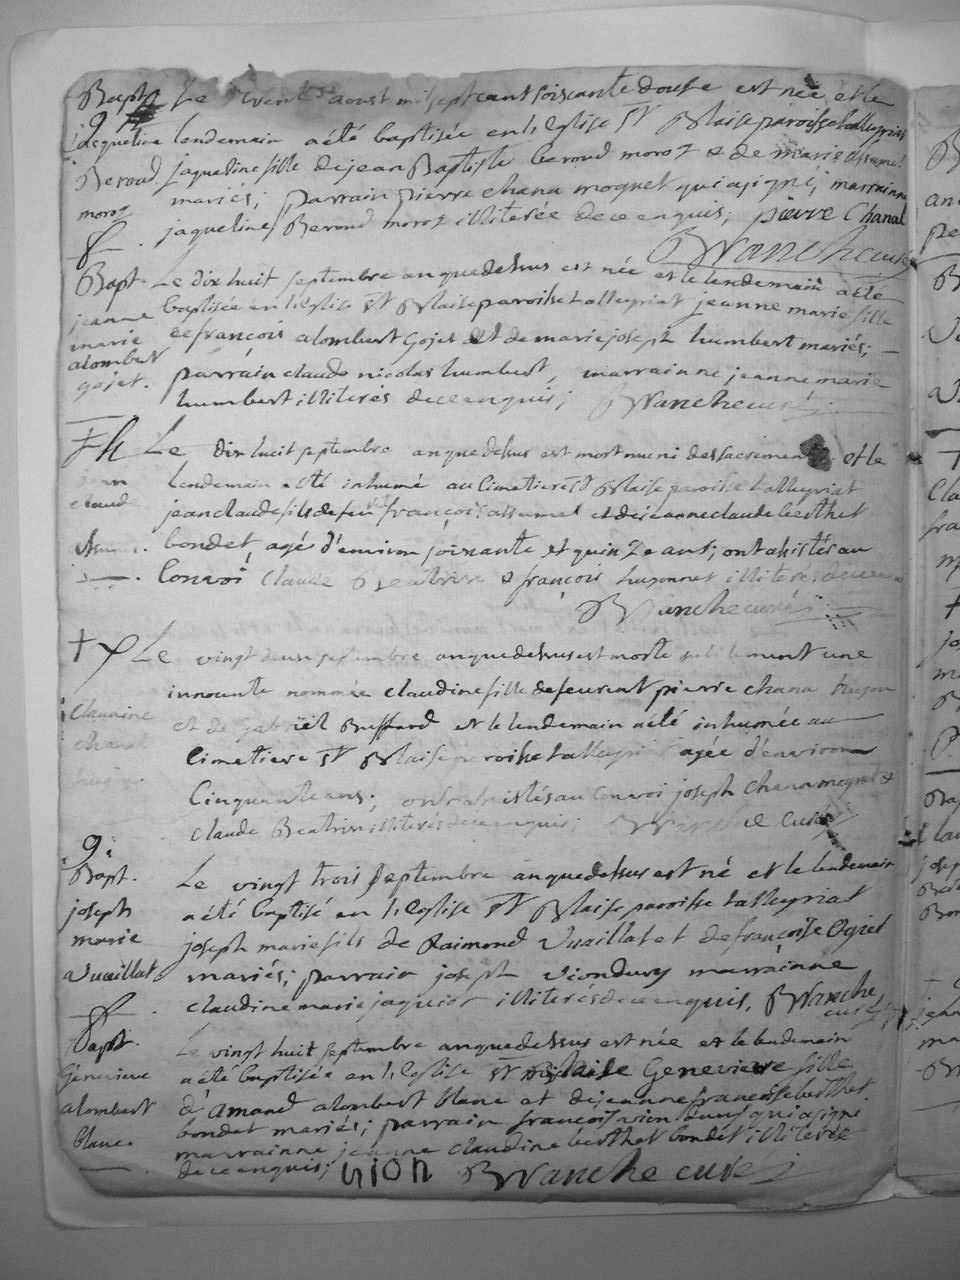 Bapt Le vent aoust mil sept cent soiscante douse est née et le
jaqueline lendemain a été baptisée en l'Eglise St Blaise paroisse talleyriat
Beroud jaqueline fille de jean Baptiste beroud moroz & de marie assumel
moroz mariés; parrain pierre chana moquet qui a signé; marrainne
jaqueline Beroud moroz illiterée de ce enquis; pierre Chanal
Branche curé
Bapt. Le dix huit septembre an que dessus est née et le lendemain a été
jeanne baptisée en l'eglise St Blaise paroisse talleyriat jeanne marie fille
marie de françois alombert gojet et de marie joseph humbert mariés;
alombert parrain claude nicolas humbert, marrainne jeanne marie
gojet. humbert illiterés de ce enquis; Branche curé
Le dix huit septembre an que dessus est mort muni des sacremen et le
jean lendemain a été inhumé au Cimetiere St Blaise paroisse talleyriat
claude jean claude fils de feu françois assumel et de jeanne claude berthet
Assu bondet, agé d'environ soissante et quinze ans; ont assistés au
Convoi Claude Beatrix & françois hugonnet illiterés de ce
Branche curé
† Le vingt deux septembre an que dessus est morte subitement une
innocente nommée claudine fille de feu pierre chana
Claudine et de Gabriël Buffard et le lendemain a été inhumée au
chanal Cimetiere St Blaise paroisse talleyriat agée d'environ
Cinquante ans; ont assistés au Convoi joseph Chana moquet &
claude Beatrix illiterés de ce enquis; Branche Curé
9.
Bapt. Le vingt trois septembre an que dessus est né et le lendemain
joseph a été baptisé en l'Eglise St Blaise paroisse talleyriat
marie joseph marie fils de Raimond Vuaillat et de françoise Ogiet
Vuaillat mariés; parrain joseph Viondury marrainne
claudine marie jaquiot illiterés de ce enquis, Branche
curé
Bapt. Le vingt huit septembre an que dessus est née et le lendemain
Génevieve a été baptisée en l'Eglise St Blaise Genevieve fille
alombert d'amand alombert blanc et de jeanne françoise berthet
blanc bondet mariés; parrain françois vion qui a signé
marrainne jeanne claudine berthet bondet illiterée
de ce enquis; Vion Branche curé